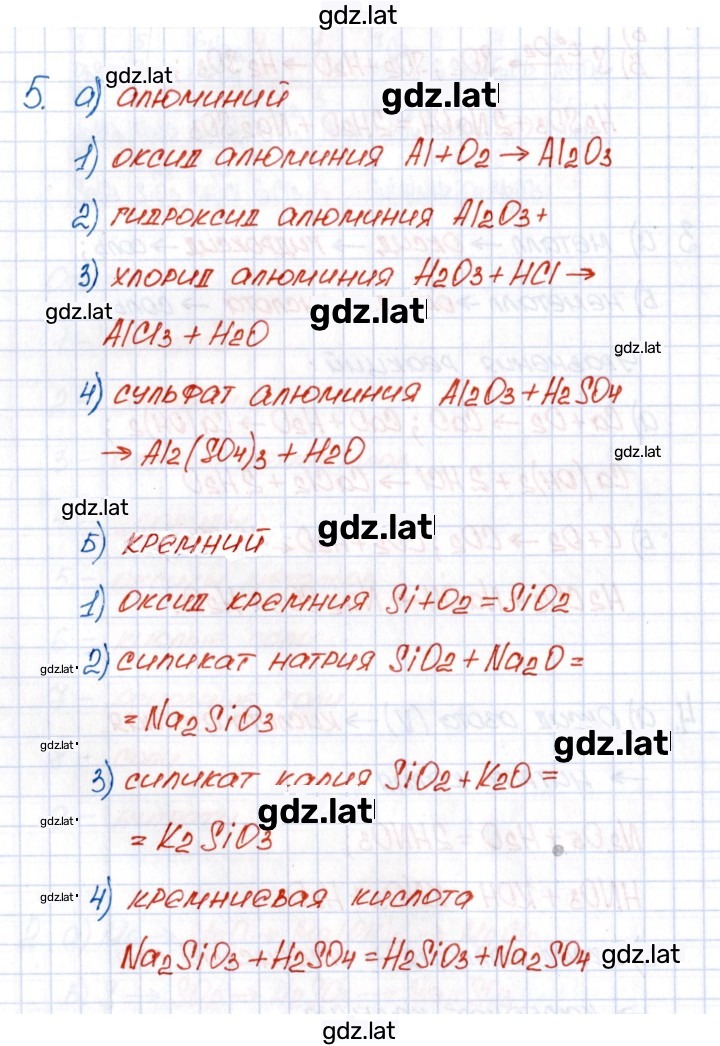 gdz.lat
gdz.lat
5. а) алюминий gdz.lat
1) оксид алюминия Al+O2 → Al2O3
2) гидроксид алюминия Al2O3+
3) хлорид алюминия H2O3+HCl →
gdz.lat gdz.lat
AlCl3 + H2O
gdz.lat
4) сульфат алюминия Al2O3+H2SO4
→ Al2(SO4)3 + H2O gdz.lat
gdz.lat gdz.lat
Б) кремний
1) оксид кремния Si+O2=SiO2
gdz.lat 2) силикат натрия SiO2+Na2O=
=Na2SiO3
gdz.lat gdz.lat
3) силикат калия SiO2+K2O=
gdz.lat gdz.lat
=K2SiO3
gdz.lat 4) кремниевая кислота
Na2SiO3+H2SO4=H2SiO3+Na2SO4 gdz.lat
gdz.lat